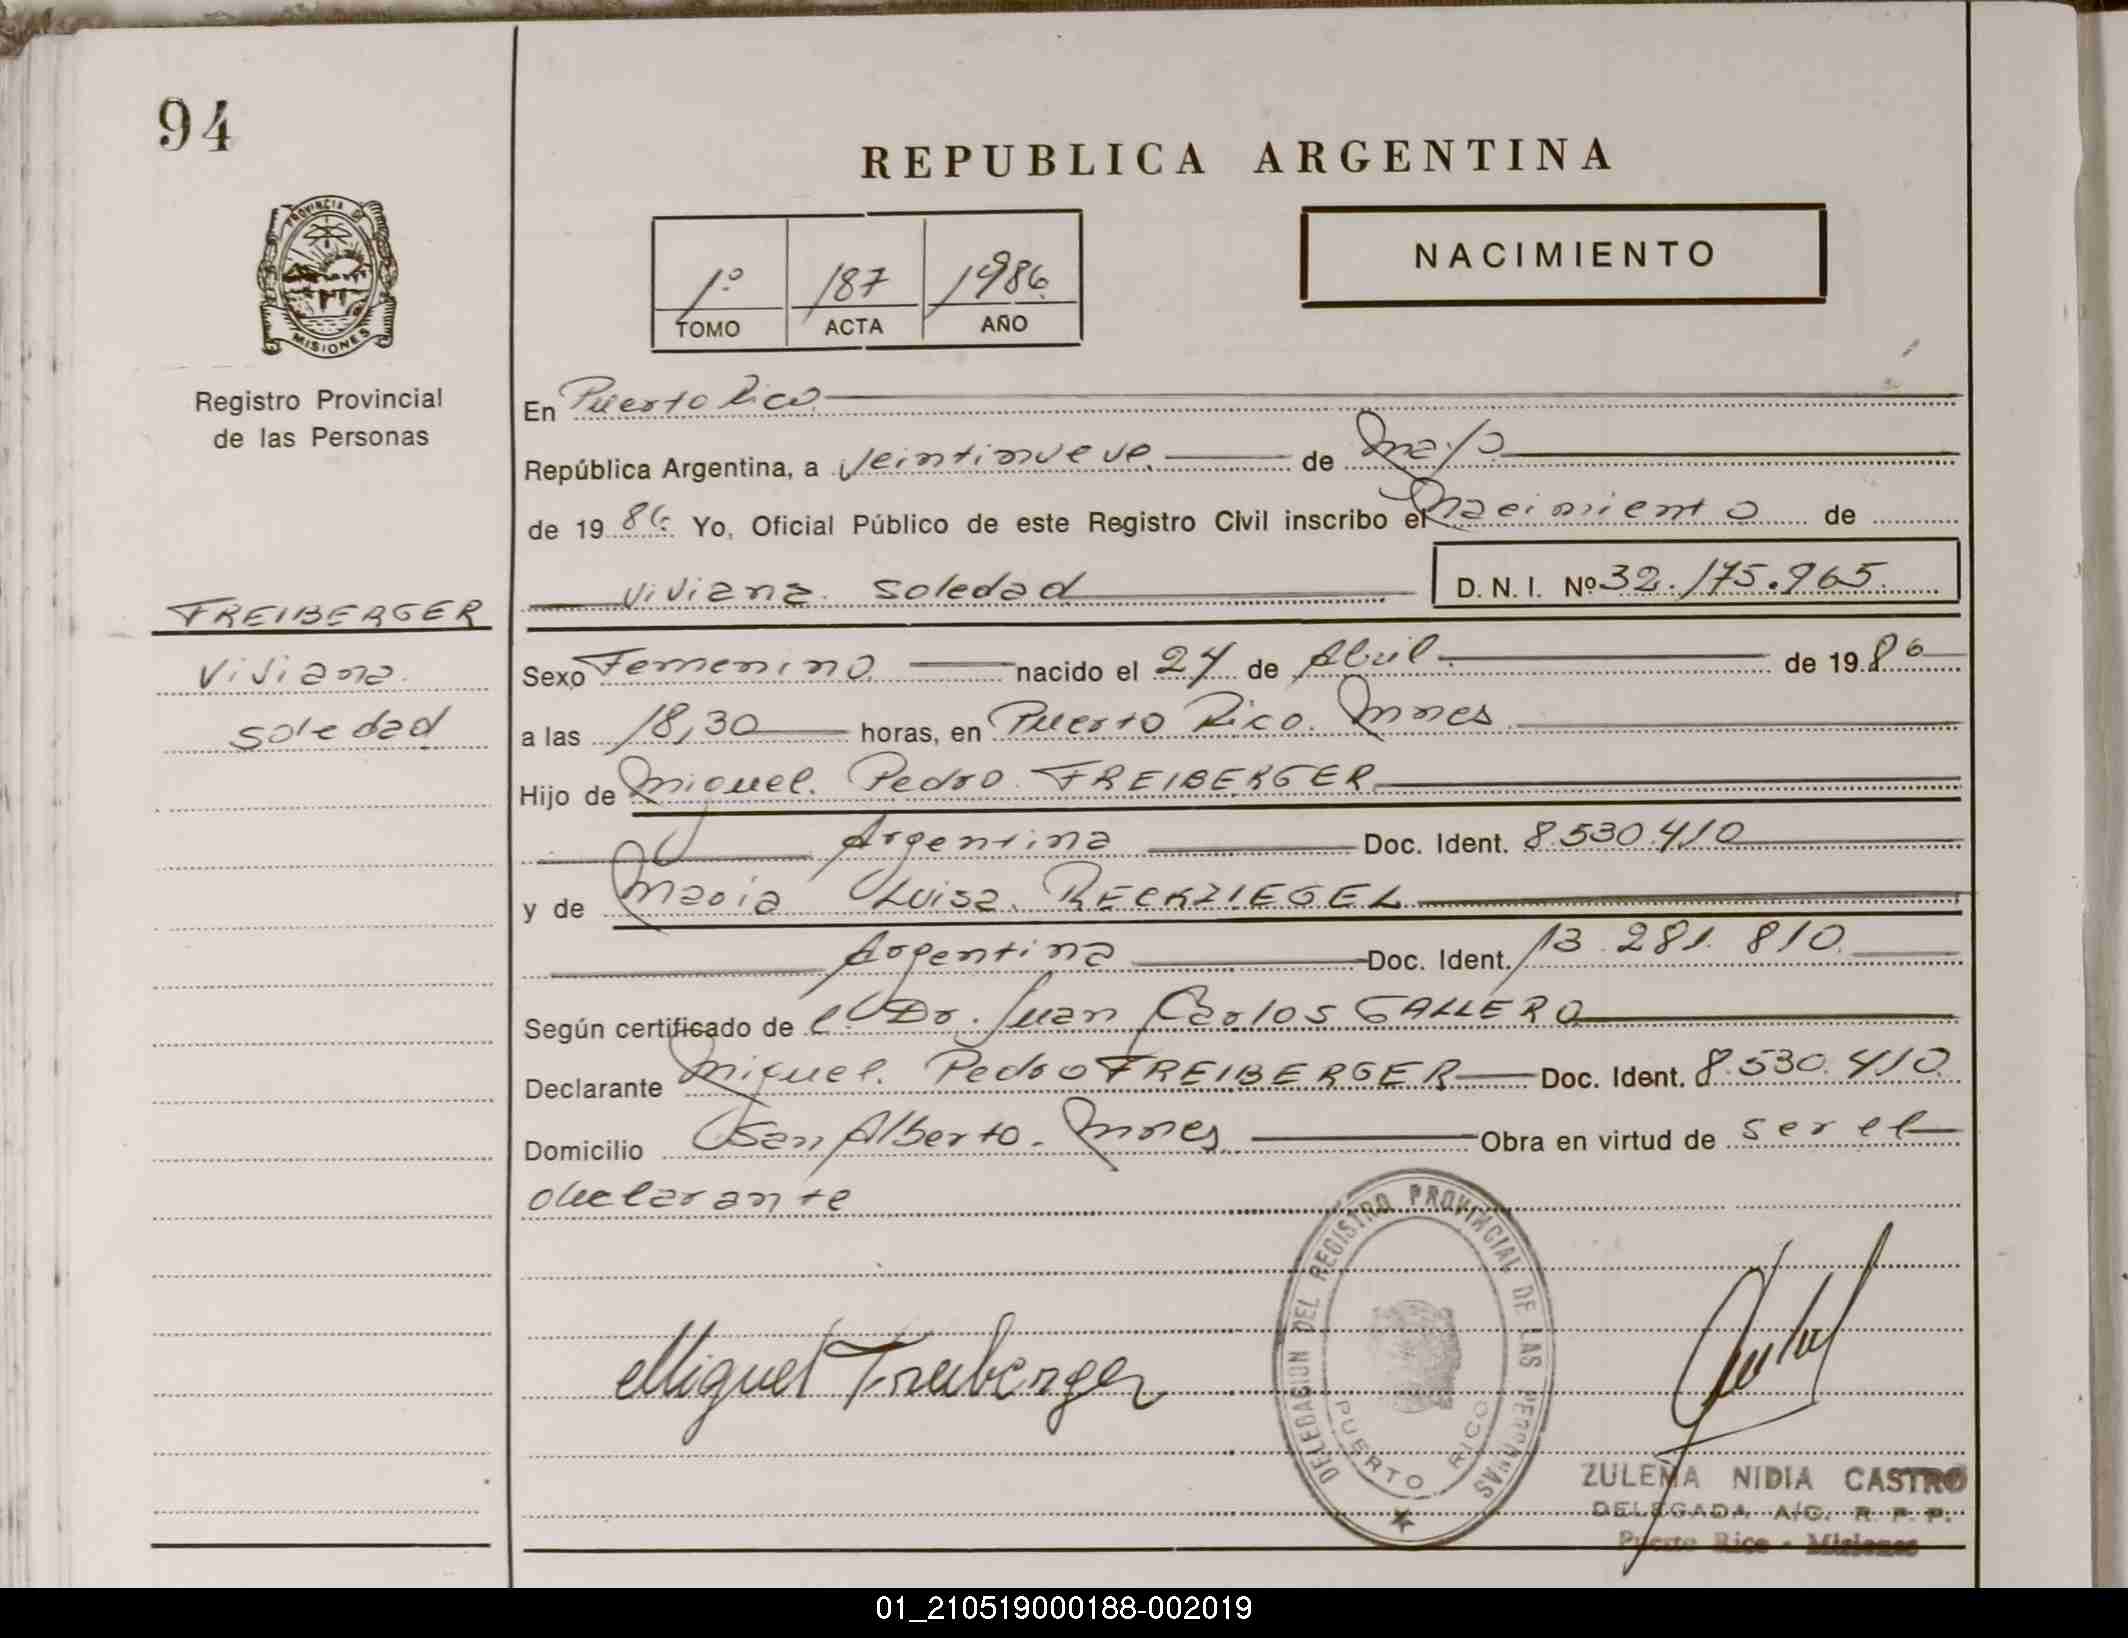 94
REPUBLICA ARGENTINA
NACIMIENTO
1º 187 1986
TOMO ACTA AÑO
PROVINCIA DE
MISIONES
Registro Provincial
de las Personas
FREIBERGER
Viviana
Soledad
En Puerto Rico
República Argentina, a Veintinueve de Mayo
de 19 86 Yo, Oficial Público de este Registro Civil inscribo el Nacimiento de
Viviana Soledad D. N. I. Nº 32.175.965
Sexo Femenino nacido el 24 de Abril de 19 86
a las 18,30 horas, en Puerto Rico. Mnes
Hijo de Miguel Pedro FREIBERGER
Argentina Doc. Ident. 8.530.410
y de Maria Luisa RECKZIEGEL
Argentina Doc. Ident. 13.281.810
Según certificado de el Dr. Juan Carlos GALLERO
Declarante Miguel Pedro FREIBERGER Doc. Ident. 8.530.410
Domicilio San Alberto. Mnes Obra en virtud de ser el
declarante
DELEGACION DEL REGISTRO PROVINCIAL DE LAS PERSONAS
PUERTO RICO
Miguel Freiberger
ZULEMA NIDIA CASTRO
DELEGADA A/C. R. P. P.
Puerto Rico - Misiones
01_210519000188-002019